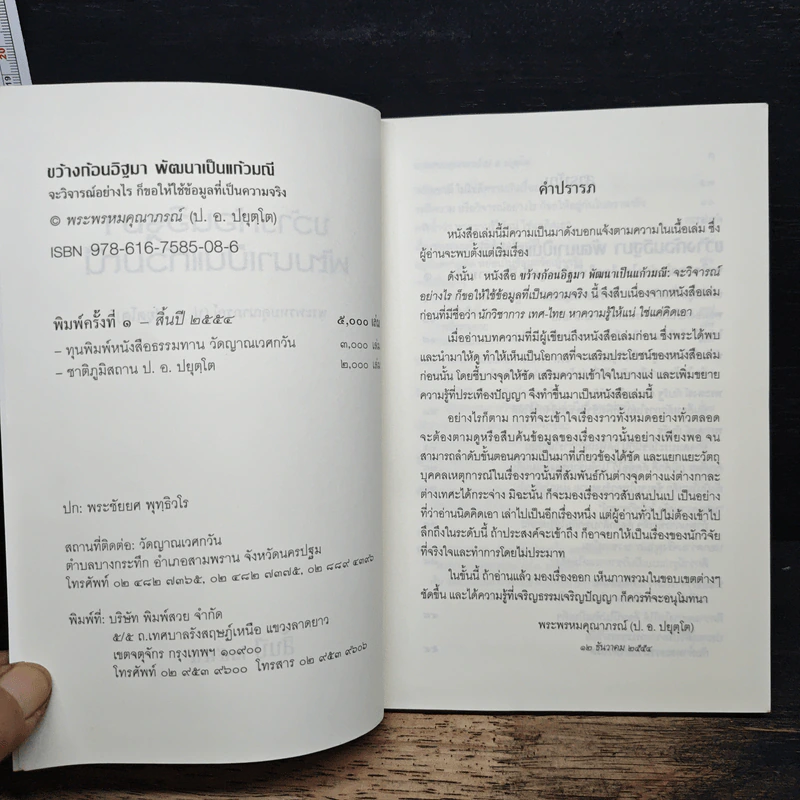 ขว้างก้อนอิฐมา พัฒนาเป็นแก้วมณี
จะวิจารณ์อย่างไร ก็ขอให้ใช้ข้อมูลที่เป็นความจริง
© พระพรหมคุณาภรณ์ (ป. อ. ปยุตฺโต)
ISBN 978-616-7585-08-6
พิมพ์ครั้งที่ ๑ – สิ้นปี ๒๕๕๔ ๕,๐๐๐ เล่ม
– ทุนพิมพ์หนังสือธรรมทาน วัดญาณเวศกวัน ๓,๐๐๐ เล่ม
– ชาติภูมิสถาน ป. อ. ปยุตฺโต ๒,๐๐๐ เล่ม
ปก: พระชัยยศ พุทฺธิวโร
สถานที่ติดต่อ: วัดญาณเวศกวัน
ตำบลบางกระทึก อำเภอสามพราน จังหวัดนครปฐม
โทรศัพท์ ๐๒ ๔๘๒ ๗๓๖๕, ๐๒ ๔๘๒ ๗๓๗๕, ๐๒ ๘๘๙ ๔๓๙๖
พิมพ์ที่: บริษัท พิมพ์สวย จำกัด
๕/๕ ถ.เทศบาลรังสฤษฏ์เหนือ แขวงลาดยาว
เขตจตุจักร กรุงเทพฯ ๑๐๙๐๐
โทรศัพท์ ๐๒ ๙๕๓ ๙๖๐๐ โทรสาร ๐๒ ๙๕๓ ๙๖๐๖
คำปรารภ
หนังสือเล่มนี้มีความเป็นมาดังบอกแจ้งตามความในเนื้อเล่ม ซึ่ง
ผู้อ่านจะพบตั้งแต่เริ่มเรื่อง
ดังนั้น หนังสือ ขว้างก้อนอิฐมา พัฒนาเป็นแก้วมณี: จะวิจารณ์
อย่างไร ก็ขอให้ใช้ข้อมูลที่เป็นความจริง นี้ จึงสืบเนื่องจากหนังสือเล่ม
ก่อนที่มีชื่อว่า นักวิชาการ เทศ-ไทย หาความรู้ให้แน่ ใช่แค่คิดเอา
เมื่ออ่านบทความที่มีผู้เขียนถึงหนังสือเล่มก่อน ซึ่งพระได้พบ
และนำมาให้ดู ทำให้เห็นเป็นโอกาสที่จะเสริมประโยชน์ของหนังสือเล่ม
ก่อนนั้น โดยชี้บางจุดให้ชัด เสริมความเข้าใจในบางแง่ และเพิ่มขยาย
ความรู้ที่ประเทืองปัญญา จึงทำขึ้นมาเป็นหนังสือเล่มนี้
อย่างไรก็ตาม การที่จะเข้าใจเรื่องราวทั้งหมดอย่างทั่วตลอด
จะต้องตามดูหรือสืบค้นข้อมูลของเรื่องราวนั้นอย่างเพียงพอ จน
สามารถลำดับขั้นตอนความเป็นมาที่เกี่ยวข้องได้ชัด และแยกแยะวัตถุ
บุคคลเหตุการณ์ในเรื่องราวนั้นที่สัมพันธ์กันต่างจุดต่างแง่ต่างกาละ
ต่างเทศะได้กระจ่าง มิฉะนั้น ก็จะมองเรื่องราวสับสนปนเป เป็นอย่าง
ที่ว่าอ่านนิดคิดเอา เล่าไปเป็นอีกเรื่องหนึ่ง แต่ผู้อ่านทั่วไปไม่ต้องเข้าไป
ลึกถึงในระดับนี้ ถ้าประสงค์จะเข้าถึง ก็อาจยกให้เป็นเรื่องของนักวิจัย
ที่จริงใจและทำการโดยไม่ประมาท
ในขั้นนี้ ถ้าอ่านแล้ว มองเรื่องออก เห็นภาพรวมในขอบเขตต่างๆ
ชัดขึ้น และได้ความรู้ที่เจริญธรรมเจริญปัญญา ก็ควรที่จะอนุโมทนา
พระพรหมคุณาภรณ์ (ป. อ. ปยุตฺโต)
๑๒ ธันวาคม ๒๕๕๔